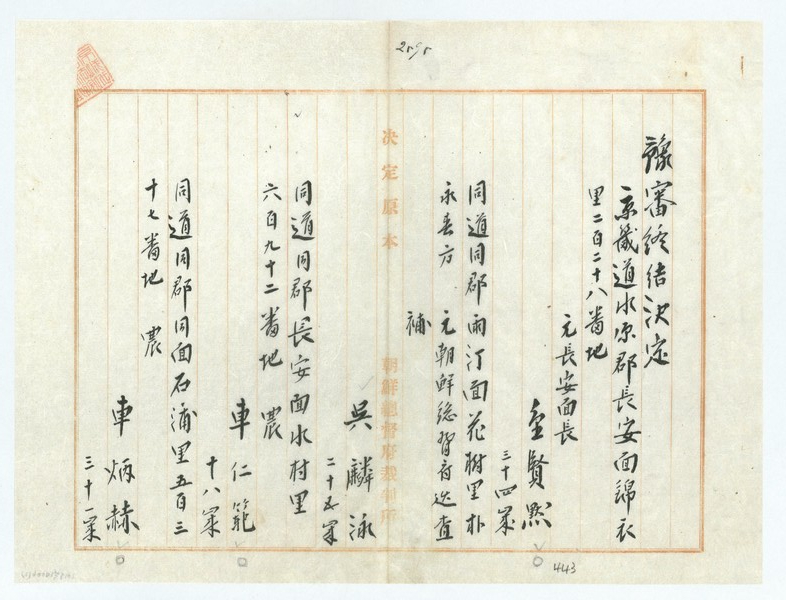 豫審終結決定
京畿道水原郡長安面錦衣
里二百二十八番地
元長安面長
金賢黙
三十四歳
同道同郡雨汀面花樹里朴
永春方 元朝鮮総督府巡査
補
吳麟泳
二十五歳
決定原本 朝鮮總督府裁判所
同道同郡長安面水村里
六百九十二番地 農
車仁範
十八歳
同道同郡同面石浦里五百三
十七番地 農
車炳赫
三十一歳
443